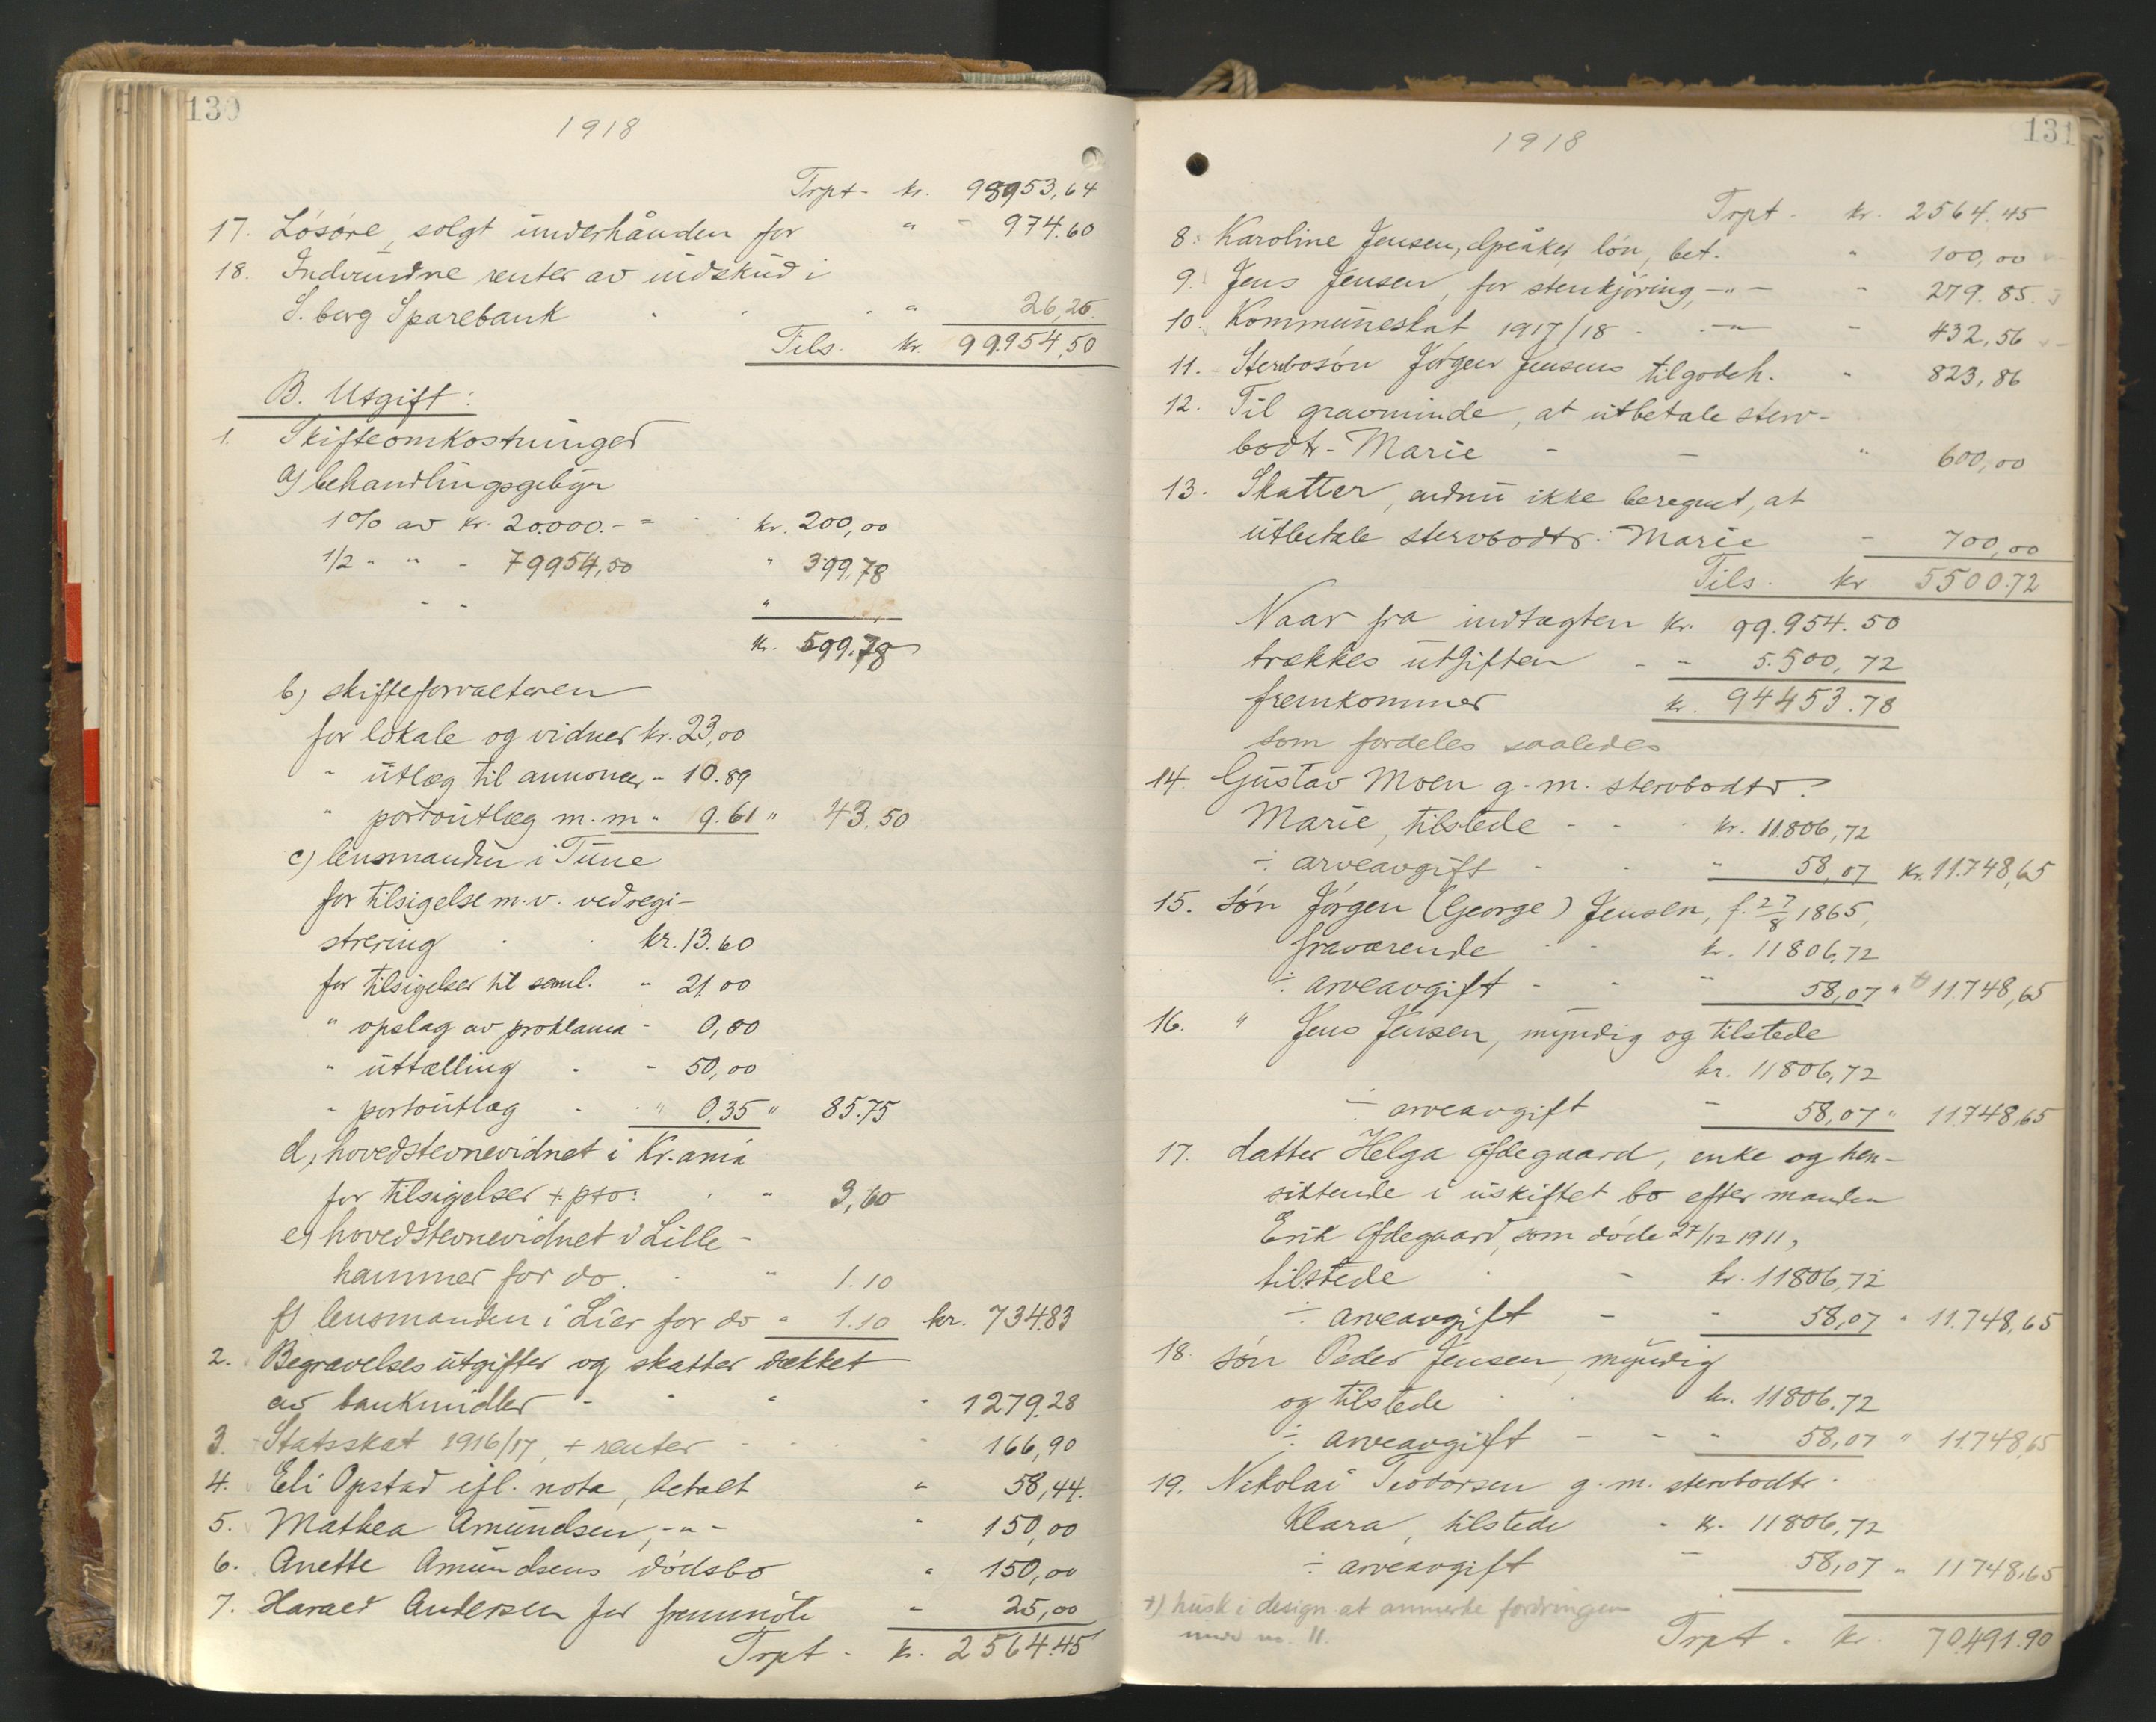 130
1918
Trpt - kr. 98953,64
17. Løsøre, solgt underhånden for " - 974.60
18. Indvundne renter av indskud i
S. borg Sparebank " 26,26.
Tils. kr. 99.954,50
B. Utgift:
1. Skifteomkostninger
a) behandlingsgebyr
1% av kr. 20.000.- = kr. 200,00
1/2 " " - 79954,50 " 399,78
" " "
kr. 599,78
b) skifteforvalteren
for lokale og vidner kr. 23,00
" utlæg til annoncer - 10.89
" portoutlæg m.m " 9.61 " 43.50
c) lensmanden i Tune
for tilsigelse m.v. ved regi-
strering kr. 13.60
for tilsigelser til saml. " 21.00
" opslag av proklama - 0,80
" uttælling - 50,00
" portoutlæg " 0,35 " 85.75
d, hovedstevnevidnet i Kr.ania
for tilsigelser + pto: " 3,60
e) hovedstevnevidnet i Lille-
hammer for do. " 1.10
f) lensmanden i Lier for do " 1.10 kr. 734.83
2. Begravelsesutgifter og skatter dækket
av bankmidler - " " " 1279.28
3. Statsskat 1916/17, + renter - " 166,90
4. Eli Opstad ifl. nota, betalt " 58,44.
5. Mathea Amundsen, -"- " 150,00
6. Anette Amundsens dødsbo " 150,00
7. Harald Andersen for fremmøte " 25,00
Trpt - kr. 2564.45
131
1918
Trpt - kr. 2564.45
8. Karoline Jensen, Opsåker løn, bet. " 100,00
9. Jens Jensen, for stenkjøring, -"- " 279.85.
10. Kommuneskat 1917/18 - -"- - 432,56
11. Stervbosøn Jørgen Jensens tilgodeh. " 823,86
12. Til gravminde, at utbetale sterv-
bodtr. Marie - - " 600,00
13. Skatter, endnu ikke beregnet, at
utbetale stervbodtr. Marie - 700,00
Tils. kr 5500.72
Naar fra indtægten kr. 99.954.50
trækkes utgiften - - 5.500,72
fremkommer kr. 94453.78
som fordeles saaledes
14. Gustav Moen g.m. stervbodtr.
Marie, tilstede - - kr. 11.806,72
÷ arveavgift - - " 58,07 kr. 11.748,65
15. Søn Jørgen (George) Jensen, f. 27/8 1865,
fraværende - - kr. 11806,72
÷ arveavgift - - " 58,07 " +) 11.748,65
16. " Jens Jensen, myndig og tilstede
kr. 11806,72
÷ arveavgift - 58,07 " 11.748,65
17. datter Helga Ødegaard, enke og hen-
sittende i uskiftet bo efter manden
Erik Ødegaard, som døde 27/12 1911,
tilstede - kr. 11806,72
÷ arveavgift - - 58,07 " 11.748,65
18. søn Peder Jensen, myndig
og tilstede kr. 11806.72
÷ arveavgift - - " 58,07 " 11.748,65
19. Nikolai Teodorsen g.m. stervbodtr.
Klara, tilstede - kr. 11806,72
÷ arveavgift - 58,07 " 11748,65
+) husk i design. at anmerke fordringen
under no. 11.
Trpt - kr. 70.491.90